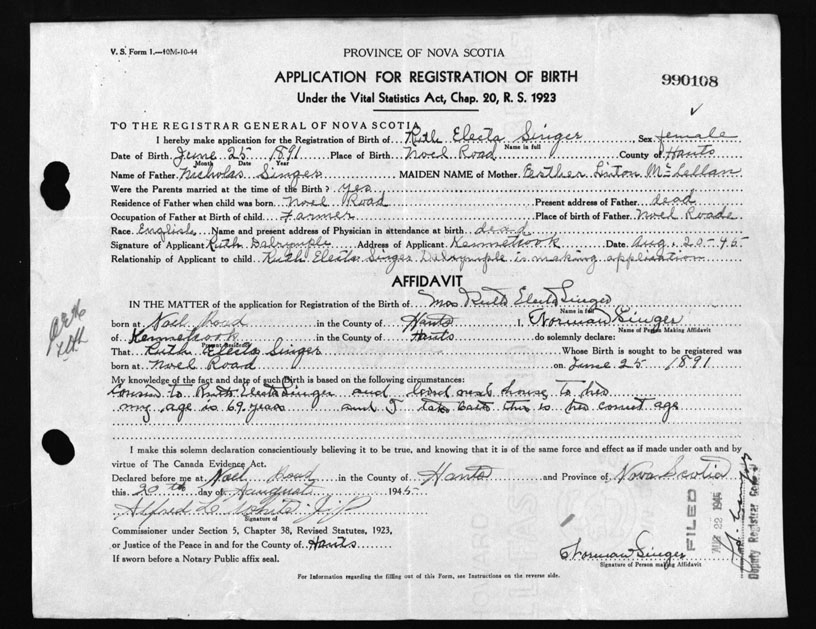 V. S. Form 1.—10M-10-44
PROVINCE OF NOVA SCOTIA
APPLICATION FOR REGISTRATION OF BIRTH
Under the Vital Statistics Act, Chap. 20, R. S. 1923
990108
TO THE REGISTRAR GENERAL OF NOVA SCOTIA
I hereby make application for the Registration of Birth of Ruth Electa Singer Sex female
Name in full
Date of Birth June 25 1891 Place of Birth Noel Road County of Hants
Month Date Year
Name of Father Nicholas Singer MAIDEN NAME of Mother Esther Linton McLellan
Were the Parents married at the time of the Birth? yes
Residence of Father when child was born Noel Road Present address of Father dead
Occupation of Father at Birth of child Farmer Place of birth of Father Noel Roade
Race English Name and present address of Physician in attendance at birth dead
Signature of Applicant Ruth Dalrymple Address of Applicant Kennetcook Date Aug. 20-45
Relationship of Applicant to child Ruth Electa Singer Dalrymple is making application
AFFIDAVIT
IN THE MATTER of the application for Registration of the Birth of Mrs Ruth Electa Singer
Name in full
born at Noel Road in the County of Hants I, Norman Singer
Name of Person Making Affidavit
of Kennetcook in the County of Hants do solemnly declare:
Present Residence
That Ruth Electa Singer Whose Birth is sought to be registered was
born at Noel Road on June 25 1891
My knowledge of the fact and date of such Birth is based on the following circumstances:
Cousin to Ruth Electa Singer and lived next house to her
my age is 69 years and I take oath this is her correct age
I make this solemn declaration conscientiously believing it to be true, and knowing that it is of the same force and effect as if made under oath and by
virtue of The Canada Evidence Act.
Declared before me at Noel Road in the County of Hants and Province of Nova Scotia
this 20th day of 1945
Alfred White J.P.
Signature of
Commissioner under Section 5, Chapter 38, Revised Statutes, 1923,
or Justice of the Peace in and for the County of Hants
If sworn before a Notary Public affix seal.
FILED
22 1945
Deputy Registrar General
Norman Singer
Signature of Person making Affidavit
For Information regarding the filling out of this Form, see Instructions on the reverse side.